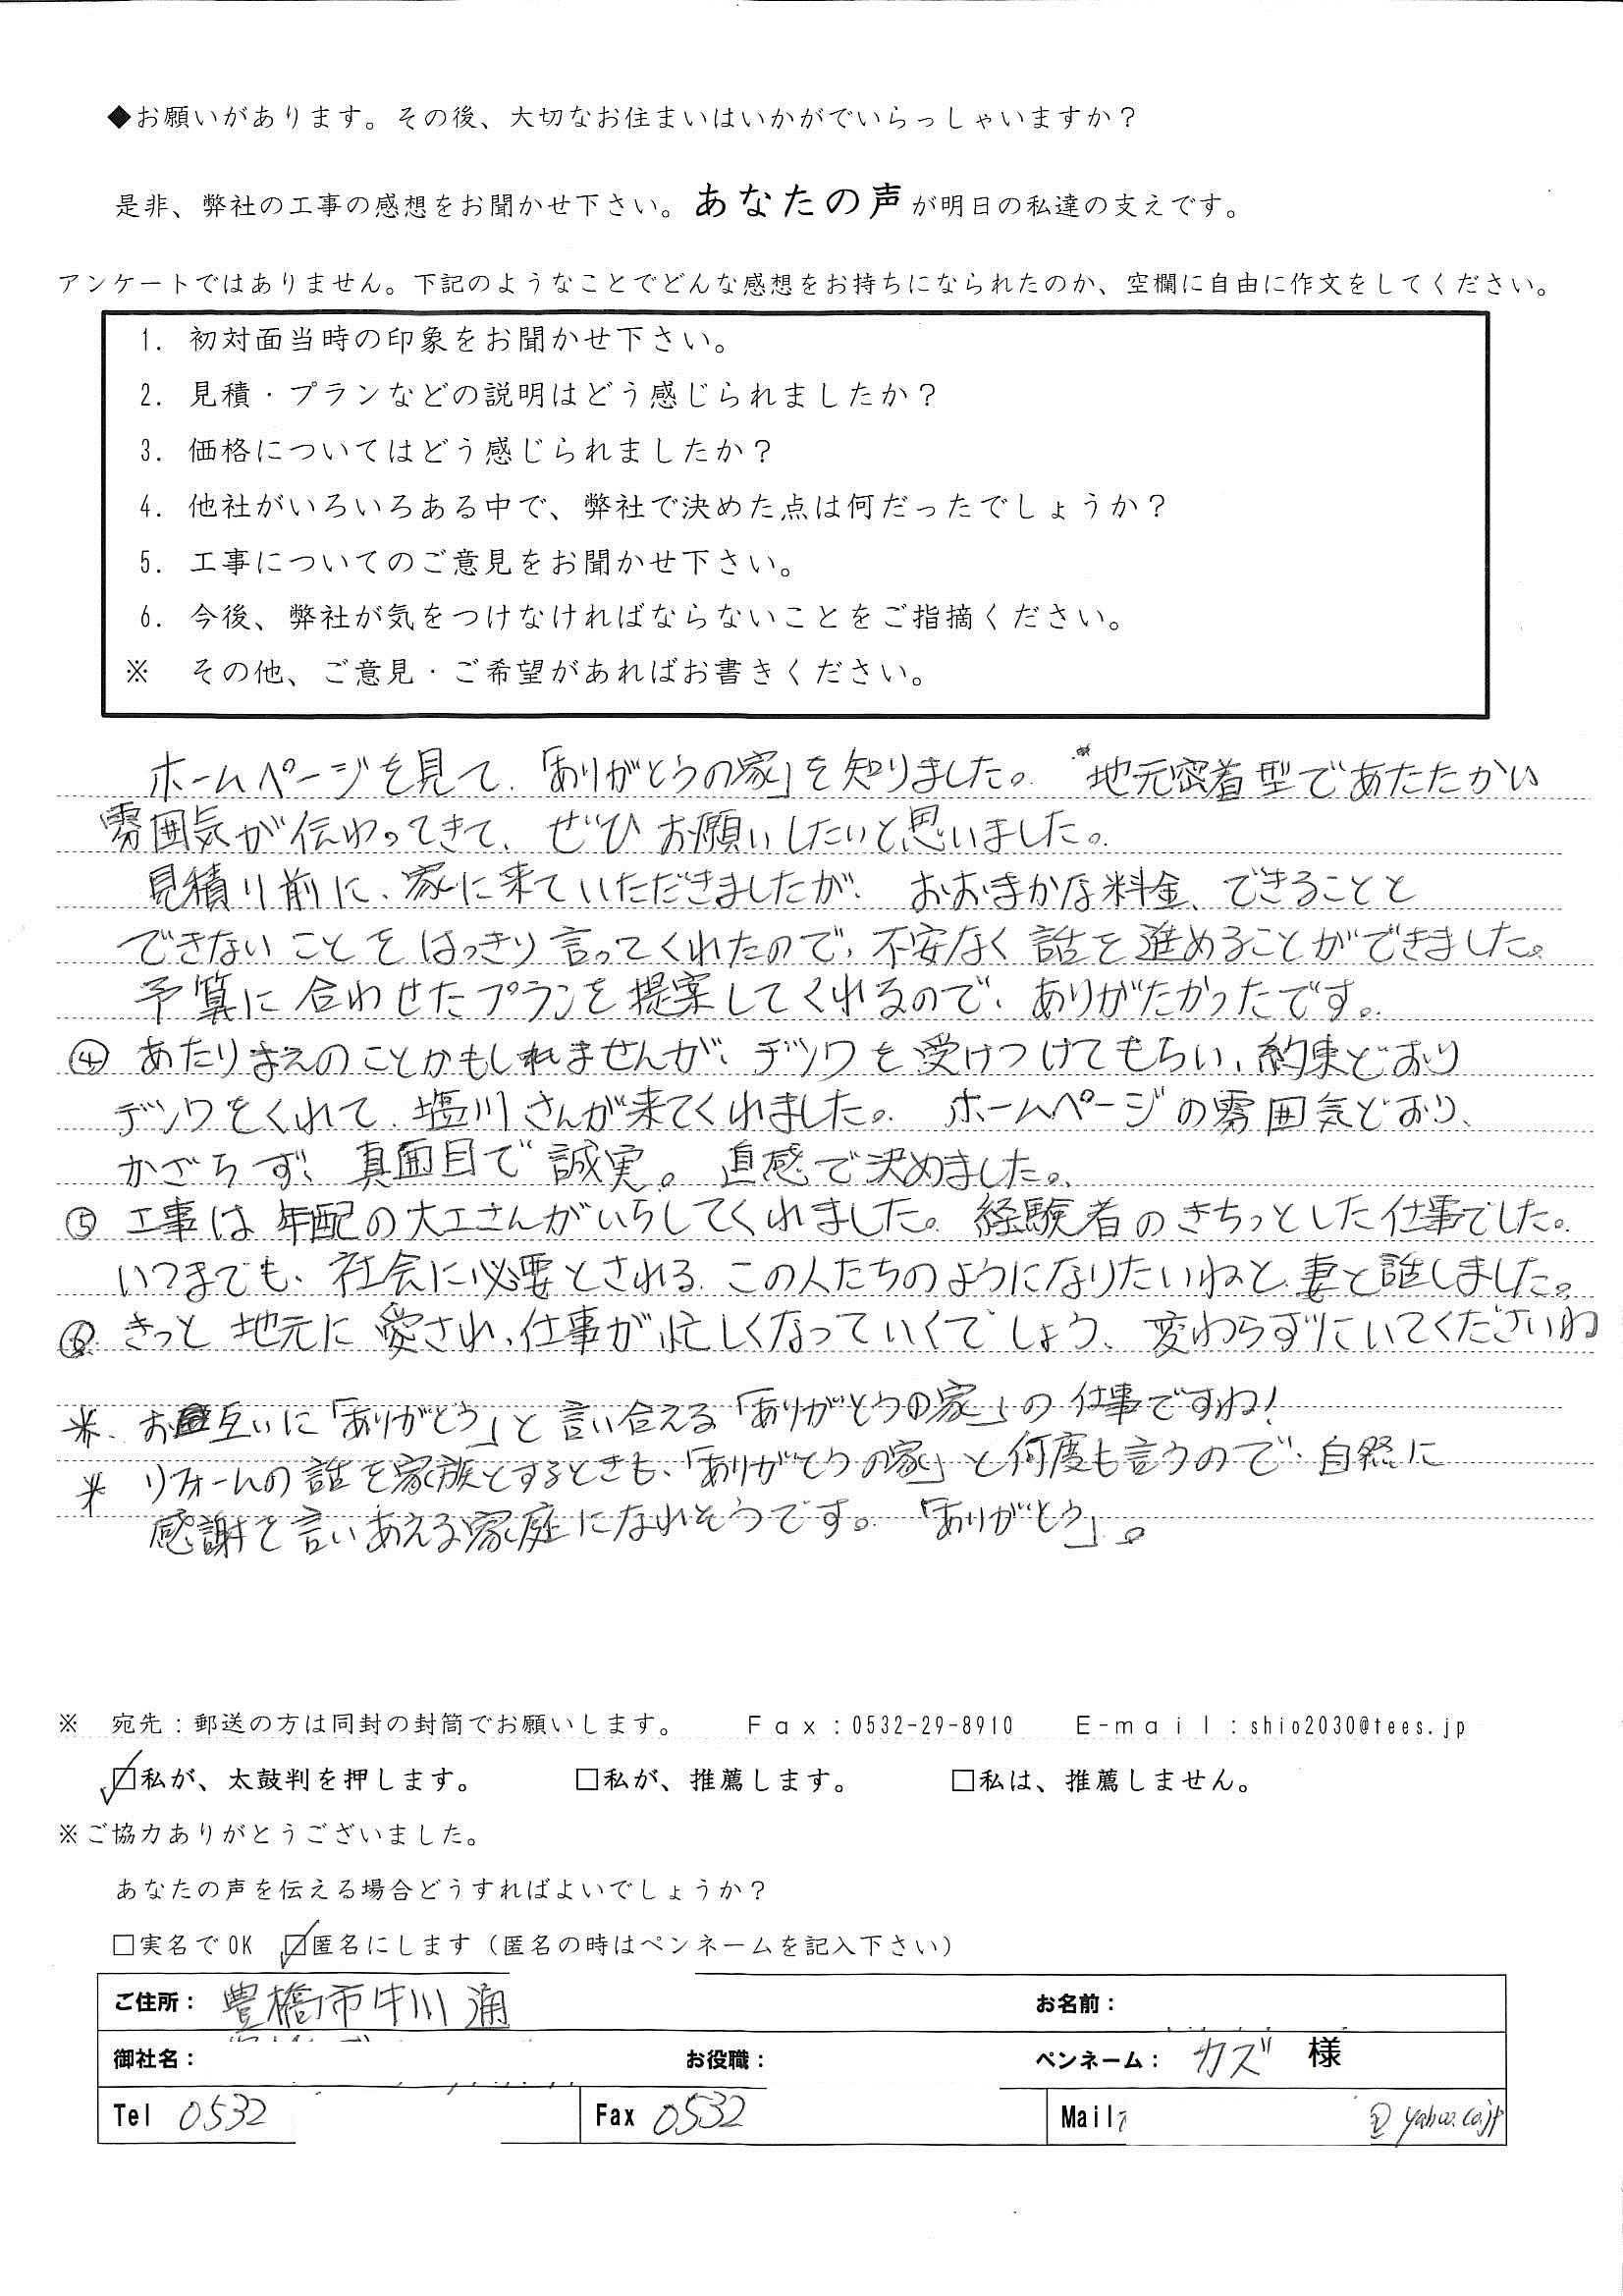 ◆お願いがあります。その後、大切なお住まいはいかがでいらっしゃいますか？
是非、弊社の工事の感想をお聞かせ下さい。あなたの声が明日の私達の支えです。
アンケートではありません。下記のようなことでどんな感想をお持ちになられたのか、空欄に自由に作文をしてください。
1. 初対面当時の印象をお聞かせ下さい。
2. 見積・プランなどの説明はどう感じられましたか？
3. 価格についてはどう感じられましたか？
4. 他社がいろいろある中で、弊社で決めた点は何だったでしょうか？
5. 工事についてのご意見をお聞かせ下さい。
6. 今後、弊社が気をつけなければならないことをご指摘ください。
※ その他、ご意見・ご希望があればお書きください。
ホームページを見て、「ありがとうの家」を知りました。 地元密着型であたたかい
雰囲気が伝わってきて、ぜひお願いしたいと思いました。
見積り前に、家に来ていただきましたが、おおまかな料金、できることと
できないことをはっきり言ってくれたので、不安なく話を進めることができました。
予算に合わせたプランを提案してくれるので、ありがたかったです。
④ あたりまえのことかもしれませんが、デンワを受けつけてもらい、約束どおり
デンワをくれて、塩川さんが来てくれました。 ホームページの雰囲気どおり、
かざらず、真面目で誠実。直感で決めました。
⑤ 工事は年配の大工さんがいらしてくれました。経験者のきちっとした仕事でした。
いつまでも、社会に必要とされる、この人たちのようになりたいねと、妻と話しました。
⑥ きっと地元に愛され、仕事が忙しくなっていくでしょう、変わらずにいてくださいね
※ お互いに「ありがとう」と言い合える「ありがとうの家」の仕事ですね！
※ リフォームの話を家族とするときも、「ありがとうの家」と何度も言うので、自然に
感謝を言いあえる家庭になれそうです。「ありがとう」。
※ 宛先：郵送の方は同封の封筒でお願いします。 Fax：0532-29-8910 E-mail：shio2030@tees.jp
☑私が、太鼓判を押します。 □私が、推薦します。 □私は、推薦しません。
※ご協力ありがとうございました。
あなたの声を伝える場合どうすればよいでしょうか？
□実名でOK ☑匿名にします（匿名の時はペンネームを記入下さい）
ご住所： 豊橋市牛川通 お名前：
御社名： お役職： ペンネーム： カズ 様
Tel 0532 Fax 0532 Mail @yahoo.co.jp